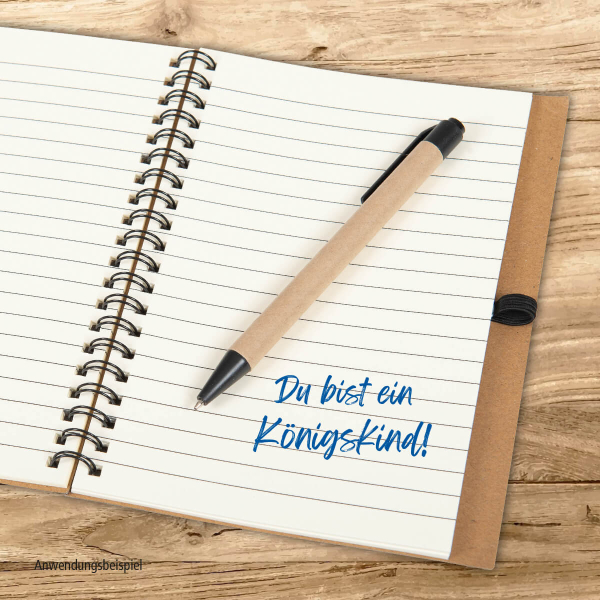 Du bist ein
Königskind!
Anwendungsbeispiel